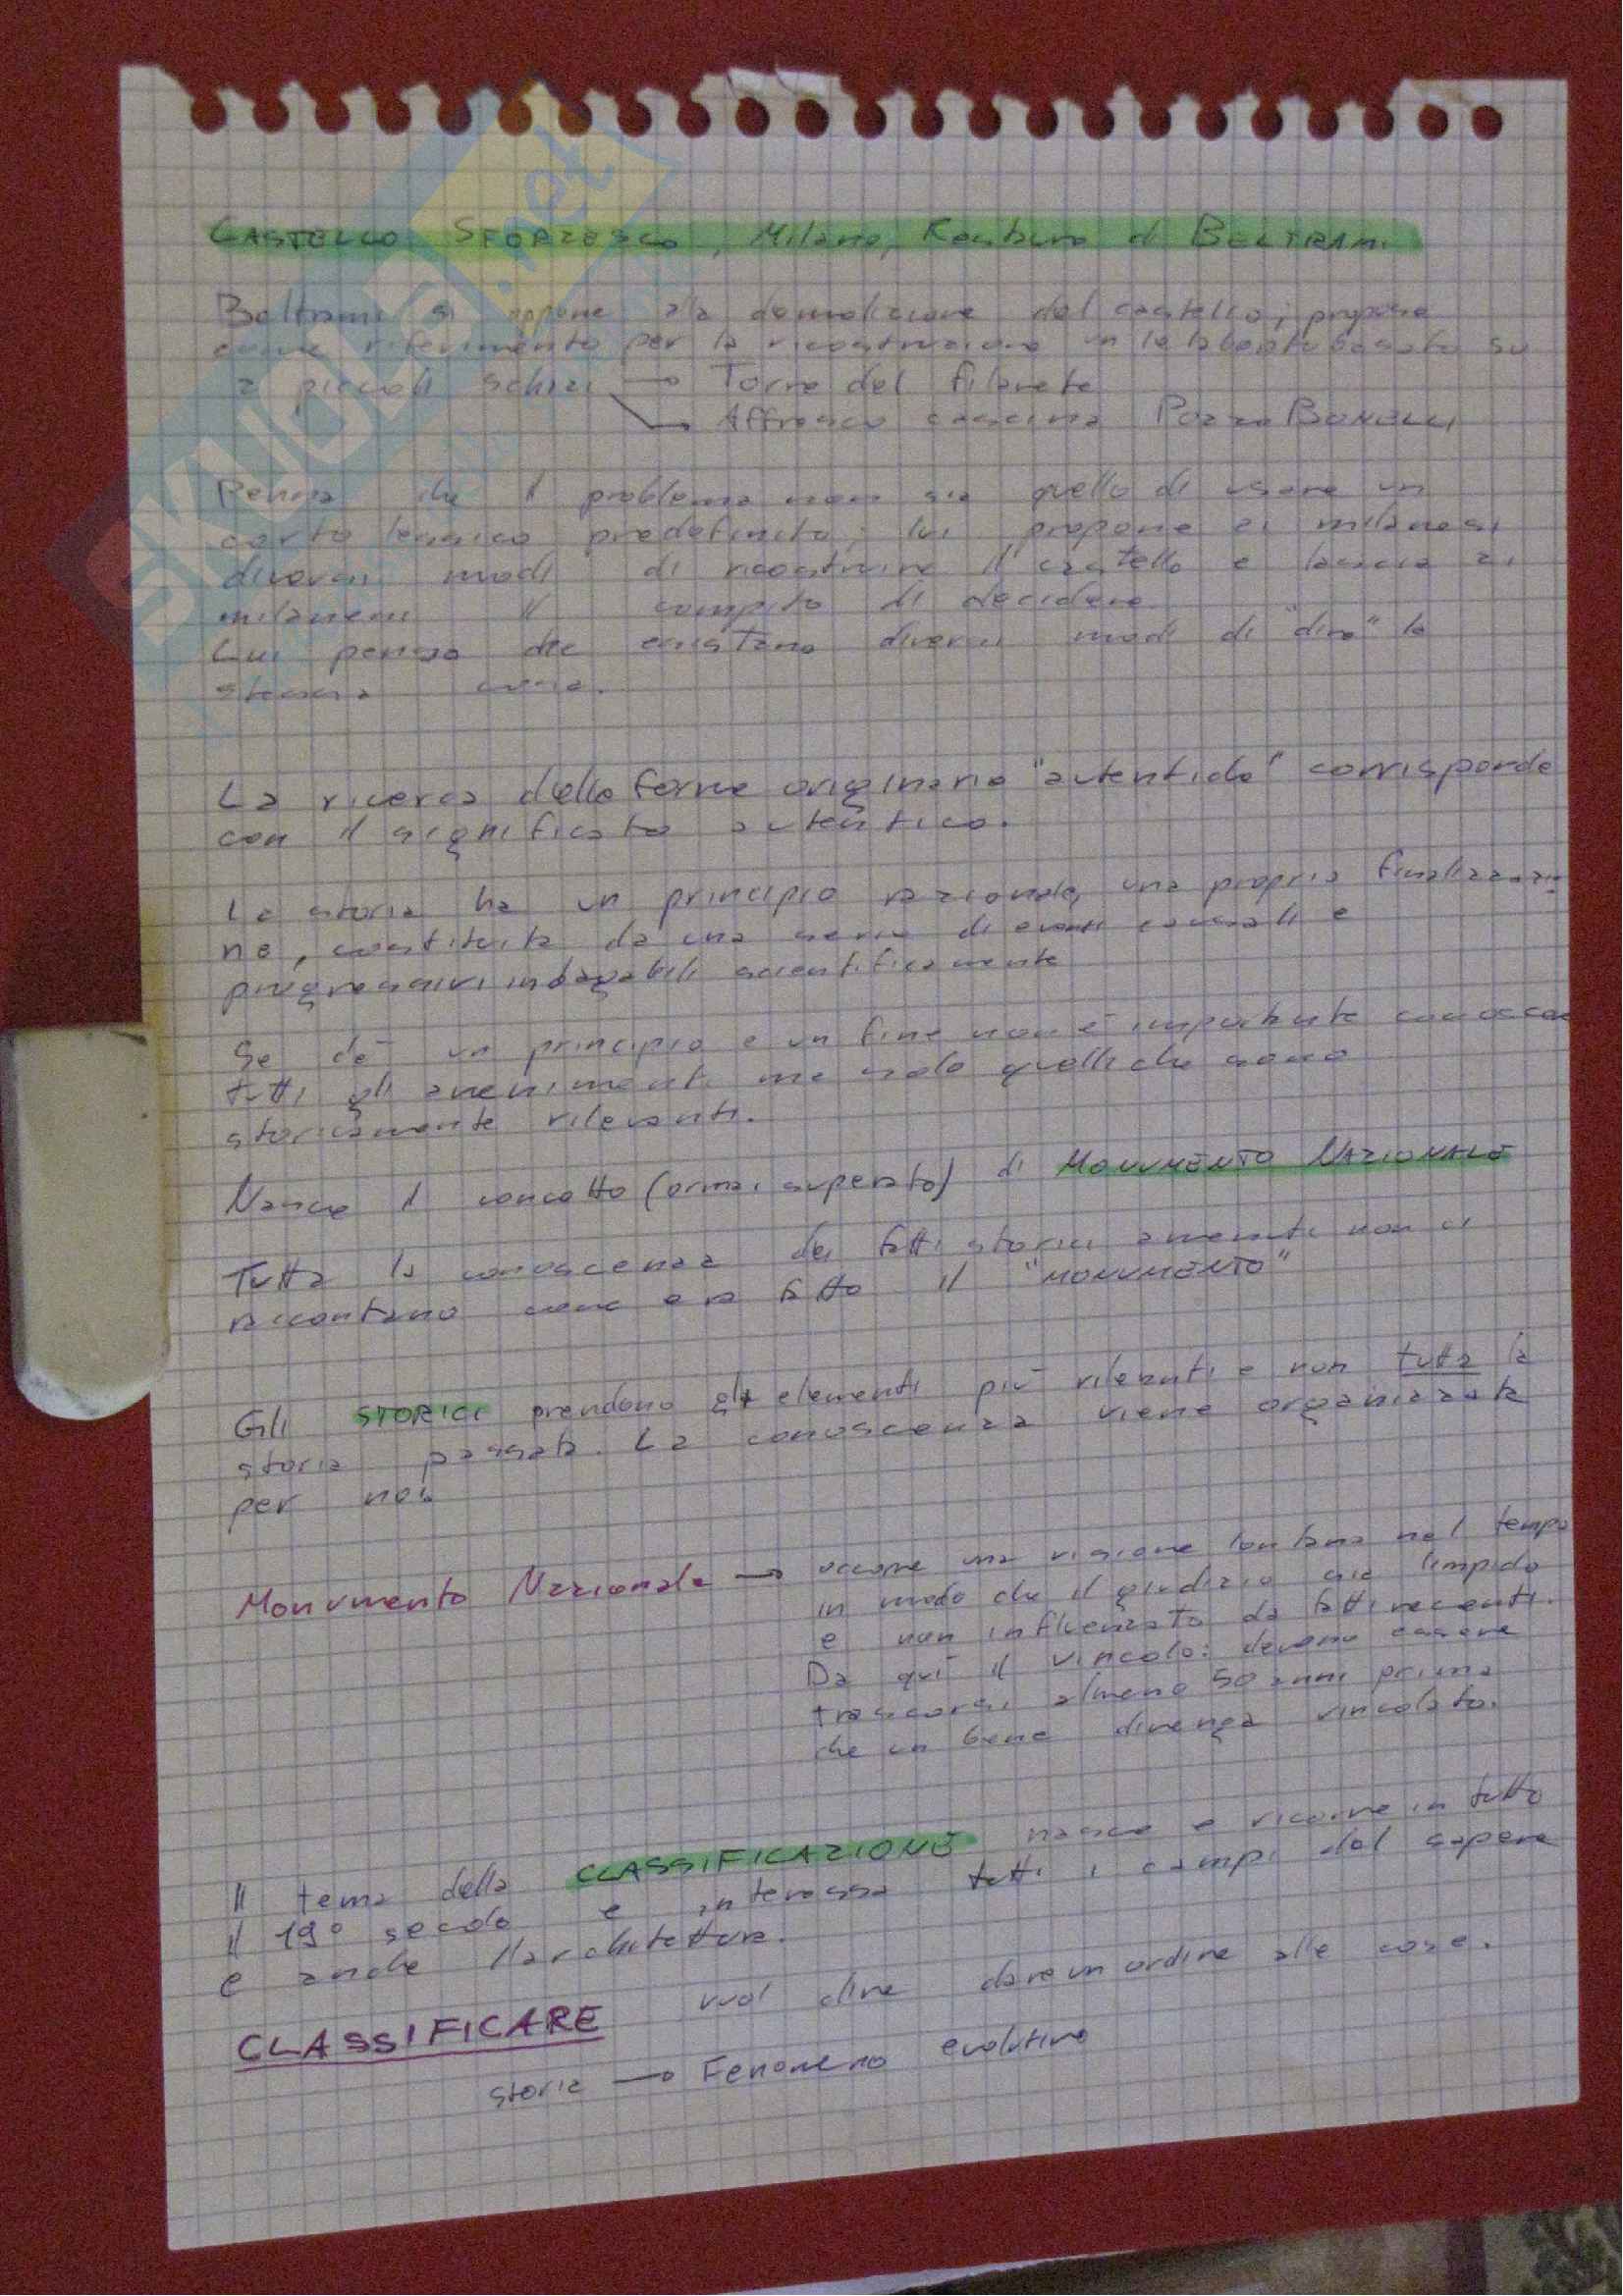 SKUOLA.net
CASTELLO SFORZESCO, Milano, Restauro di BELTRAMI
Beltrami si oppone alla demolizione del castello; propone
come riferimento per la ricostruzione un basato su
2 piccoli schizzi → Torre del filarete
→ Affresco cascina POZZOBONELLI
Pensa che il problema non sia quello di usare un
certo lessico predefinito; lui propone ai milanesi
diversi modi di ricostruire il castello e lascia ai
milanesi il compito di decidere
Lui pensa che esistano diversi modi di "dire" la
stessa cosa.
La ricerca delle forme originarie "autentiche" corrisponde
con il significato autentico.
La storia ha un principio razionale, una propria finalizzazio
ne, costituita da una serie di eventi causali e
progressivi indagabili scientificamente
Se c'è un principio e un fine non è importante conoscere
tutti gli avvenimenti ma solo quelli che sono
storicamente rilevanti.
Nasce il concetto (ormai superato) di MONUMENTO NAZIONALE
Tutta la conoscenza dei fatti storici avvenuti non ci
raccontano come era fatto il "MONUMENTO"
Gli STORICI prendono gli elementi più rilevanti e non tutta la
storia passata. La conoscenza viene organizzata
per noi.
Monumento Nazionale → occorre una visione lontana nel tempo
in modo che il giudizio sia limpido
e non influenzato da fatti recenti.
Da quì il vincolo: devono essere
trascorsi almeno 50 anni prima
che un bene divenga vincolato.
Il tema della CLASSIFICAZIONE nasce e ricorre in tutto
il 19° secolo e interessa tutti i campi del sapere
e anche l'architettura.
CLASSIFICARE vuol dire dare un ordine alle cose.
storia → Fenomeno evolutivo